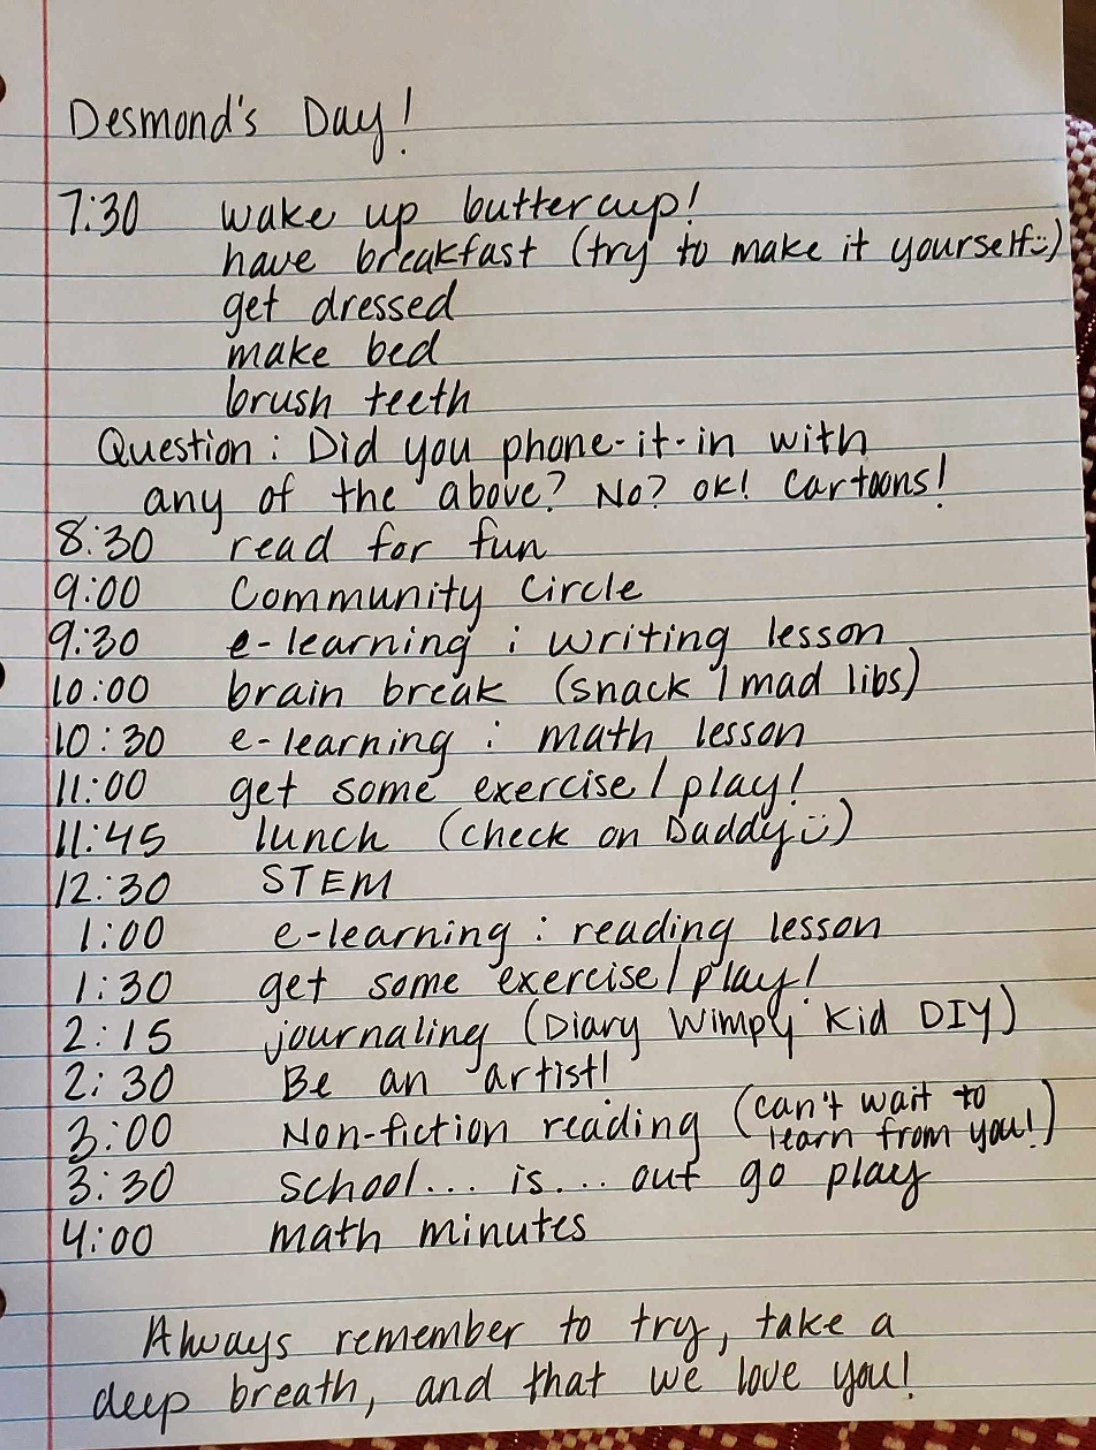 Desmond's Day!
7:30 wake up buttercup!
have breakfast (try to make it yourself :))
get dressed
make bed
brush teeth
Question: Did you phone-it-in with
any of the above? No? ok! Cartoons!
8:30 read for fun
9:00 Community Circle
9:30 e-learning : writing lesson
10:00 brain break (snack / mad libs)
10:30 e-learning : math lesson
11:00 get some exercise / play!
11:45 lunch (check on Daddy :))
12:30 STEM
1:00 e-learning : reading lesson
1:30 get some exercise / play!
2:15 journaling (Diary Wimpy Kid DIY)
2:30 Be an artist!
3:00 Non-fiction reading (can't wait to
learn from you!)
3:30 school... is... out go play
4:00 math minutes
Always remember to try, take a
deep breath, and that we love you!